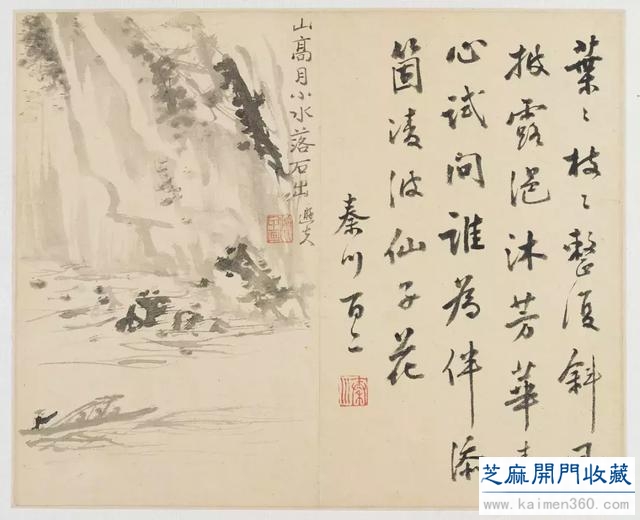 葉〻枝〻整復斜
披露浥沐芳華
心試問誰為伴添
箇凌波仙子花
秦川百二
山高月小水落石出
芝麻開門收藏
www.kaimen360.com